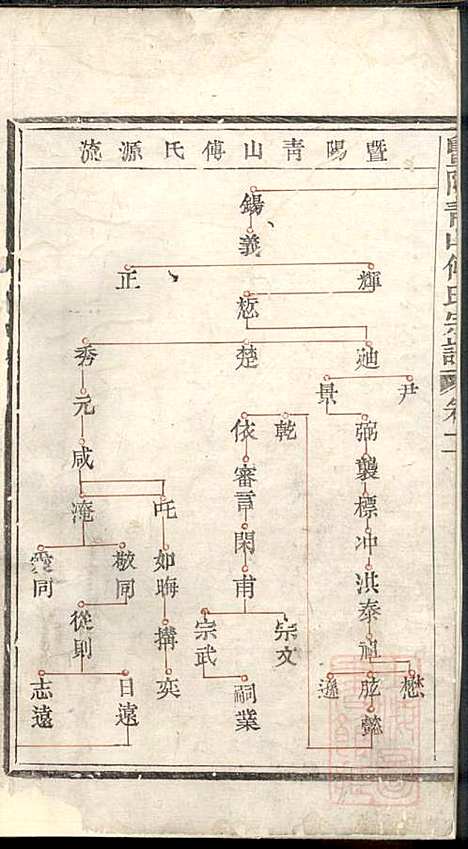 暨陽青山傅氏源流
暨陽青山傅氏宗譜 卷一
錫
義
輝 正
悊
迪 楚 秀
尹 景
弼 乾 依 元
襲 審言 咸
標 閑 淹 㐌
冲 甫 如晦 敬同
洪 宗文 宗武 搆 從則
泰 嗣業 奕 日遠 志遠
祖
懋 肱 遜
懿